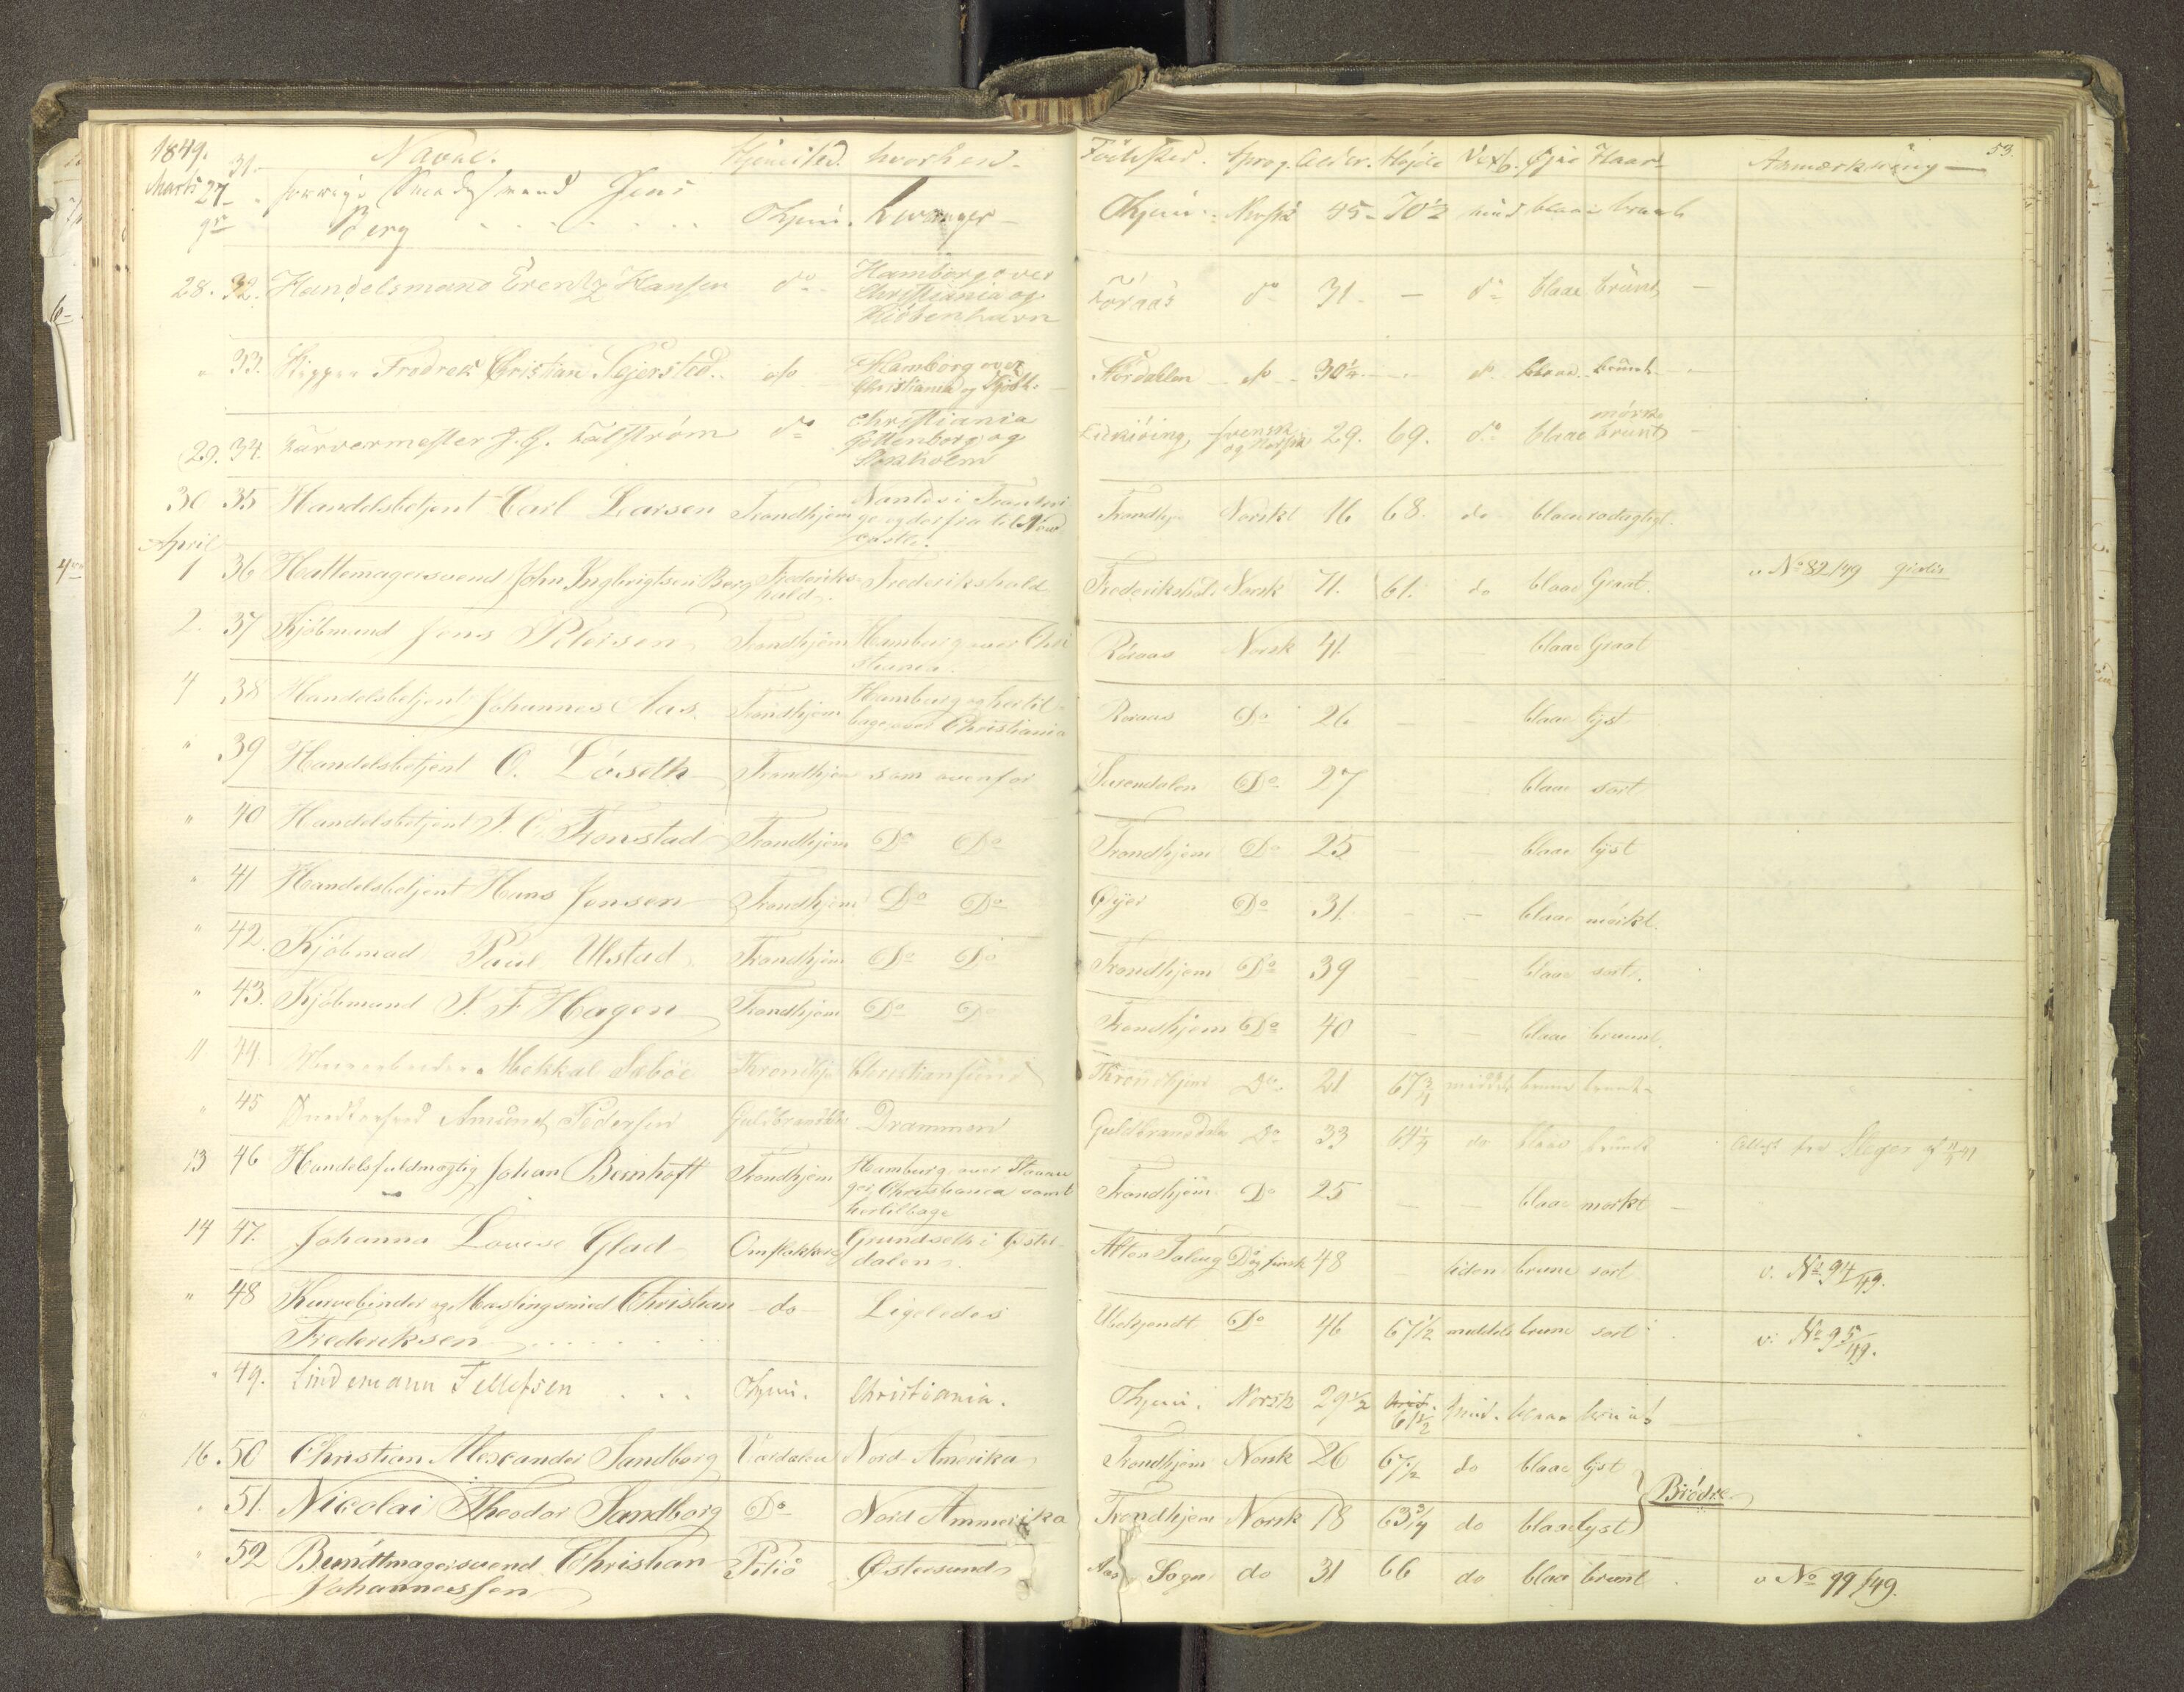 1849. Navne. Hjemsted. hvorhen. Födested. Sprog. Alder. Høide Vext. Øjne Haar Anmærkning 53.
Marts 27 31. Svend Jens
Berg Thjem. Levanger Thjem. Norsk 45 70½ blaae brunt
28. 32. Handelsmand Erentz Hansen do Hamborg over
Christiania og
Kiöbenhavn Röraas do 31. — do blaae brunt —
" 33. Fredrek Christian Sejersted do Hamborg over
Christiania og Kjöbh. Stördalen do 30¼ do blaae brunt
29. 34. Farvermester J. G. do Christiania
Gottenborg og
Stokholm Lidkiöping, svensk
og Norsk 29. 69. do blaae mørke
brunt
30 35 Handelsbetjent Carl Larsen Trondhjem Nantes i Frankeri
ge og derfra til New
castle. Trondhj. Norskt 16 68. do blaae rødagtigt.
April
1 36 Hattemagersvend John Ingbrigtsen Berg Frederiks
hald. Frederikshald Frederikshald Norsk 71. 61. do blaae Graat. v. No 82/49 gratis
2. 37 Kjöbmand Jens Petersen Trondhjem Hamburg over Chri
stiania. Röraas Norsk 41. — — blaae Graat
4 38 Handelsbetjent Johannes Aas. Trondhjem Hamburg og hertil
bage over Christiania Roraas Do 26 — — blaae lyst
" 39 Handelsbetjent O. Löseth Trondhjem som ovenfor Surendalen Do 27 — — blaae sort
" 40 Handelsbetjent J. C. Fronstad Trondhjem Do Do Trondhjem Do 25 — — blaae lyst
" 41 Handelsbetjent Hans Jensen Trondhjem Do Do Øyer Do 31. — — blaae mörkt.
" 42. Kjöbmad Paul Ulstad Trondhjem Do Do Trondhjem Do 39 — — blaae sort.
" 43. Kjöbmand F. Hagen Trondhjem Do Do Trondhjem Do 40 — — blaae bruunt.
11 44. Mekkal Saböe Throndhjem Christiansund Throndhjem Do. 21 67¾ middels brune brunt
" 45 Snedkersvend Amund Pedersen Guldbrandsdalen Drammen Guldbrandsdalen Do 33 64¼ do blaae brunt Attest fra
13 46 Handelsfuldmægtig Johan Bernhoft Trondhjem Hamburg over Stavan
ger, Christiania samt
hertilbage Trondhjem Do 25 — — blaae mørkt —
14 47. Johanna Lovise Glad Omflakkere Grundseth i Øster
dalen. Alten Talvig Do og finsk 48 — liden brune sort v. No 94/49.
" 48 Kurvebinder og Mestingsmed Christian
Frederiksen do Ligeledes Ubekjendt Do 46 67½ middels brune sort v. No 95/49.
" 49. Lindemann Tellefsen Thjem. Christiania. Thjem. Norsk 29½ 61½ mid. blaae brunt
16. 50 Christian Alexander Sandborg Værdalen Nord Amerika Trondhjem Norsk 26 67½ do blaae lyst
" 51. Nicolai Theodor Sandborg Do Nord Ammerika Trondhjem Norsk 18 63¾ do blaae lyst Brödre
" 52 Bundtmagersvend Christian
Johannessen Piteå Østersund Aas Sogn do 31 66 do blaa brunt v No 99/49.